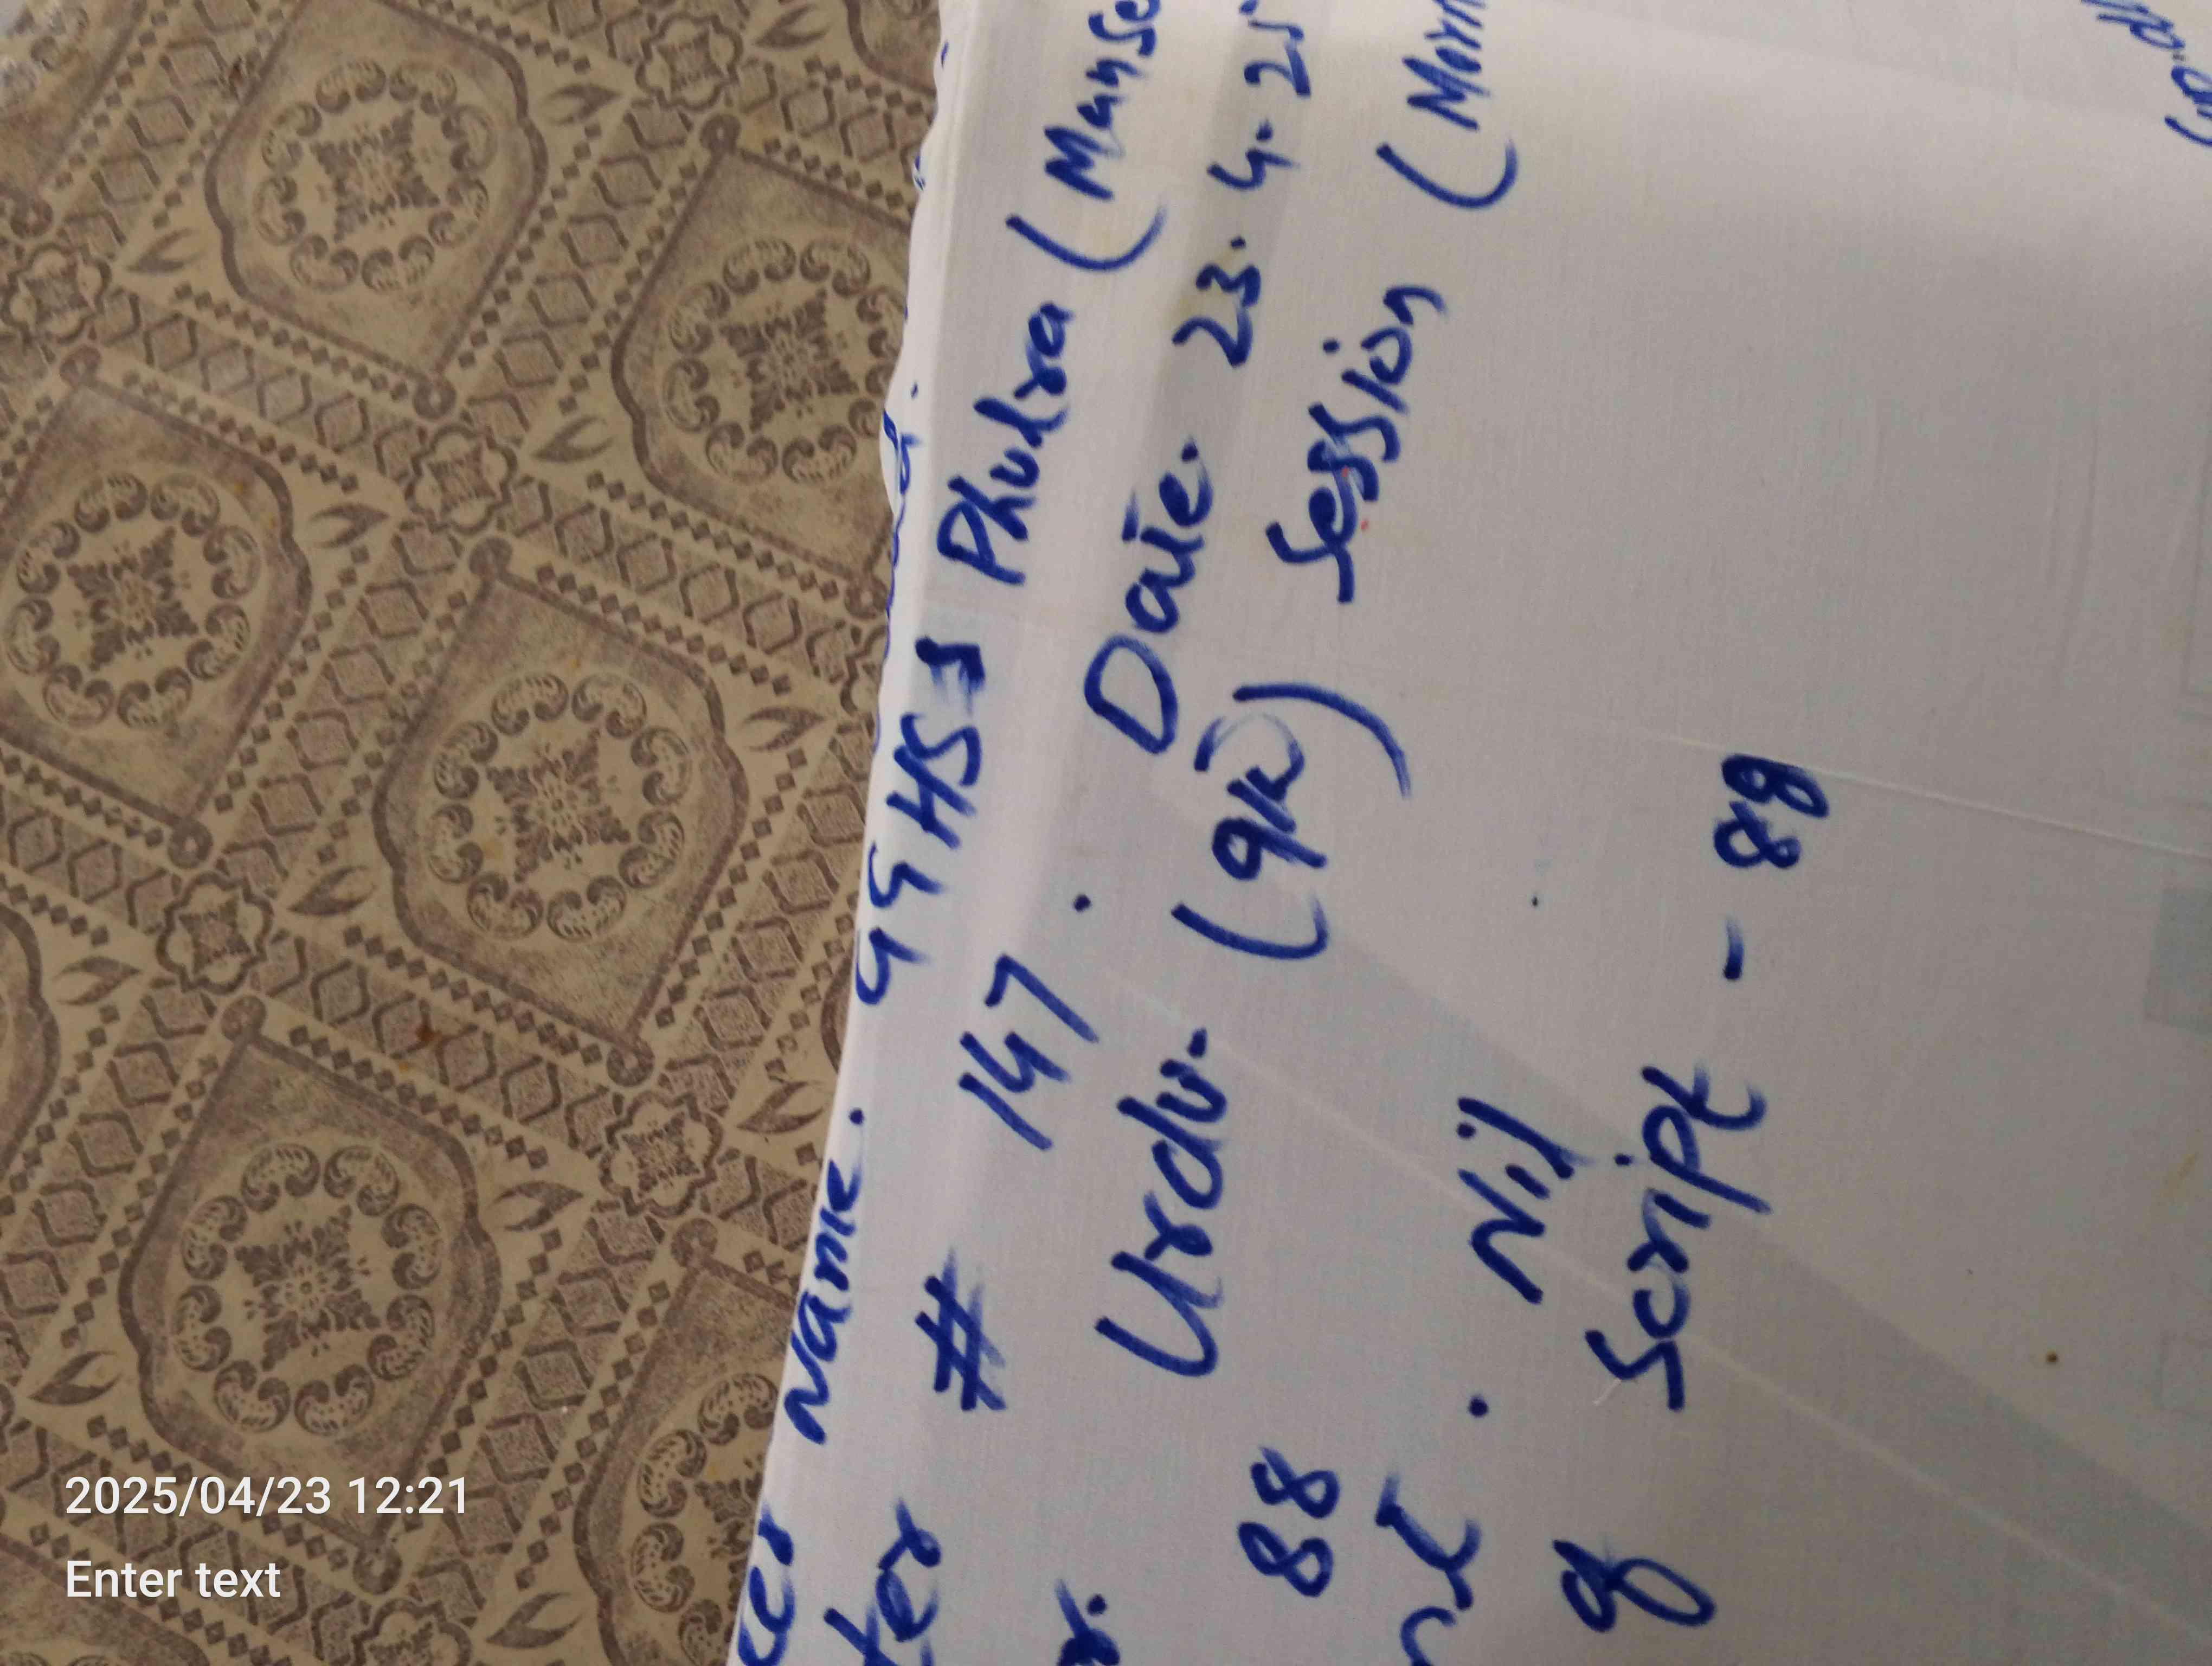 Name. GGHSS Phulra (Manse
ter # 147. Date. 23.4.25
Urdu. (9th) Session (Morn
88
Nil
of Script - 88
2025/04/23 12:21
Enter text